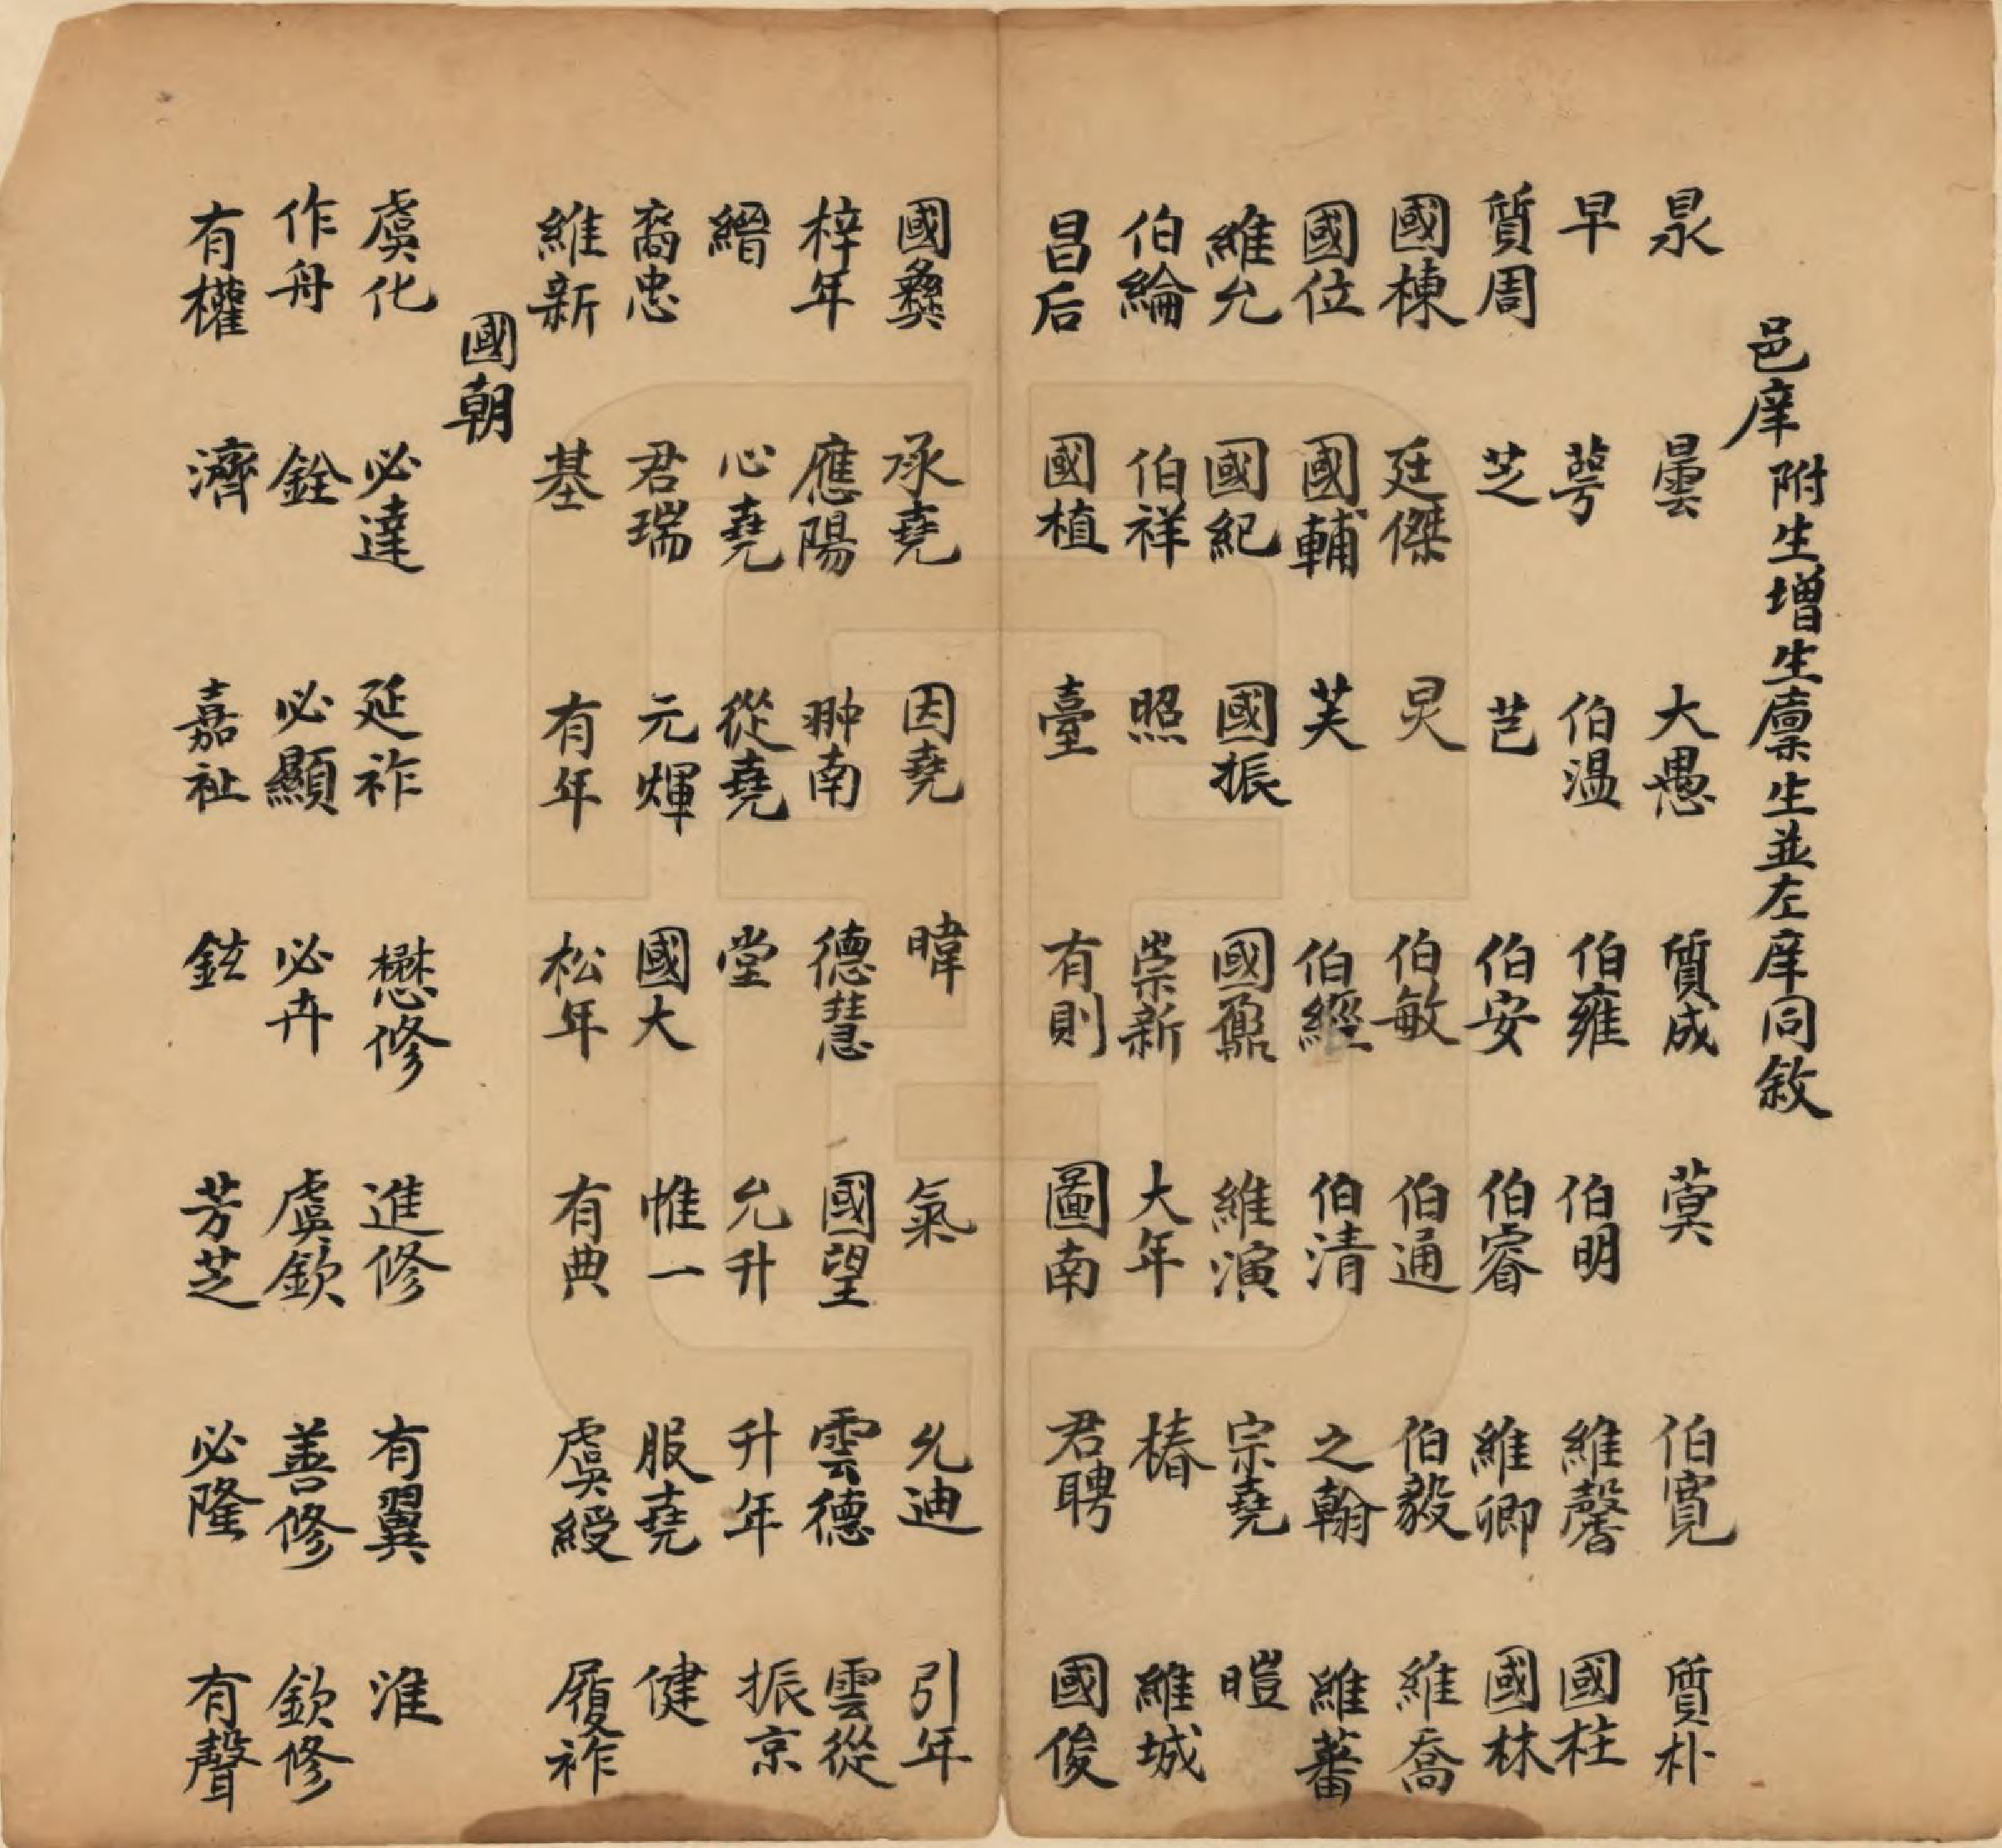 邑庠附生增生廩生並左庠同敘
泉 曇 大愚 質成 蓂 伯寬 質朴
早 萼 伯温 伯雍 伯明 維馨 國柱
質周 芝 芑 伯安 伯睿 維卿 國林
國棟 廷傑 炅 伯敏 伯通 伯毅 維喬
國位 國輔 芙 伯經 伯清 之翰 維蕃
維允 國紀 國振 國鼐 維演 宗堯 暟
伯綸 伯祥 照 崇新 大年 椿 維城
昌后 國植 臺 有則 圖南 君聘 國俊
國彝 承堯 因堯 暐 氣 允迪 引年
梓年 應陽 翀南 德慧 國望 雲德 雲從
縉 心堯 從堯 堂 允升 升年 振京
裔忠 君瑞 元煇 國大 惟一 服堯 健
維新 基 有年 松年 有典 虞綬 履祚
國朝
虞化 必達 延祚 懋修 進修 有翼 淮
作舟 銓 必顯 必卉 虞欽 善修 欽修
有權 濟 嘉祉 鉉 芳芝 必隆 有聲